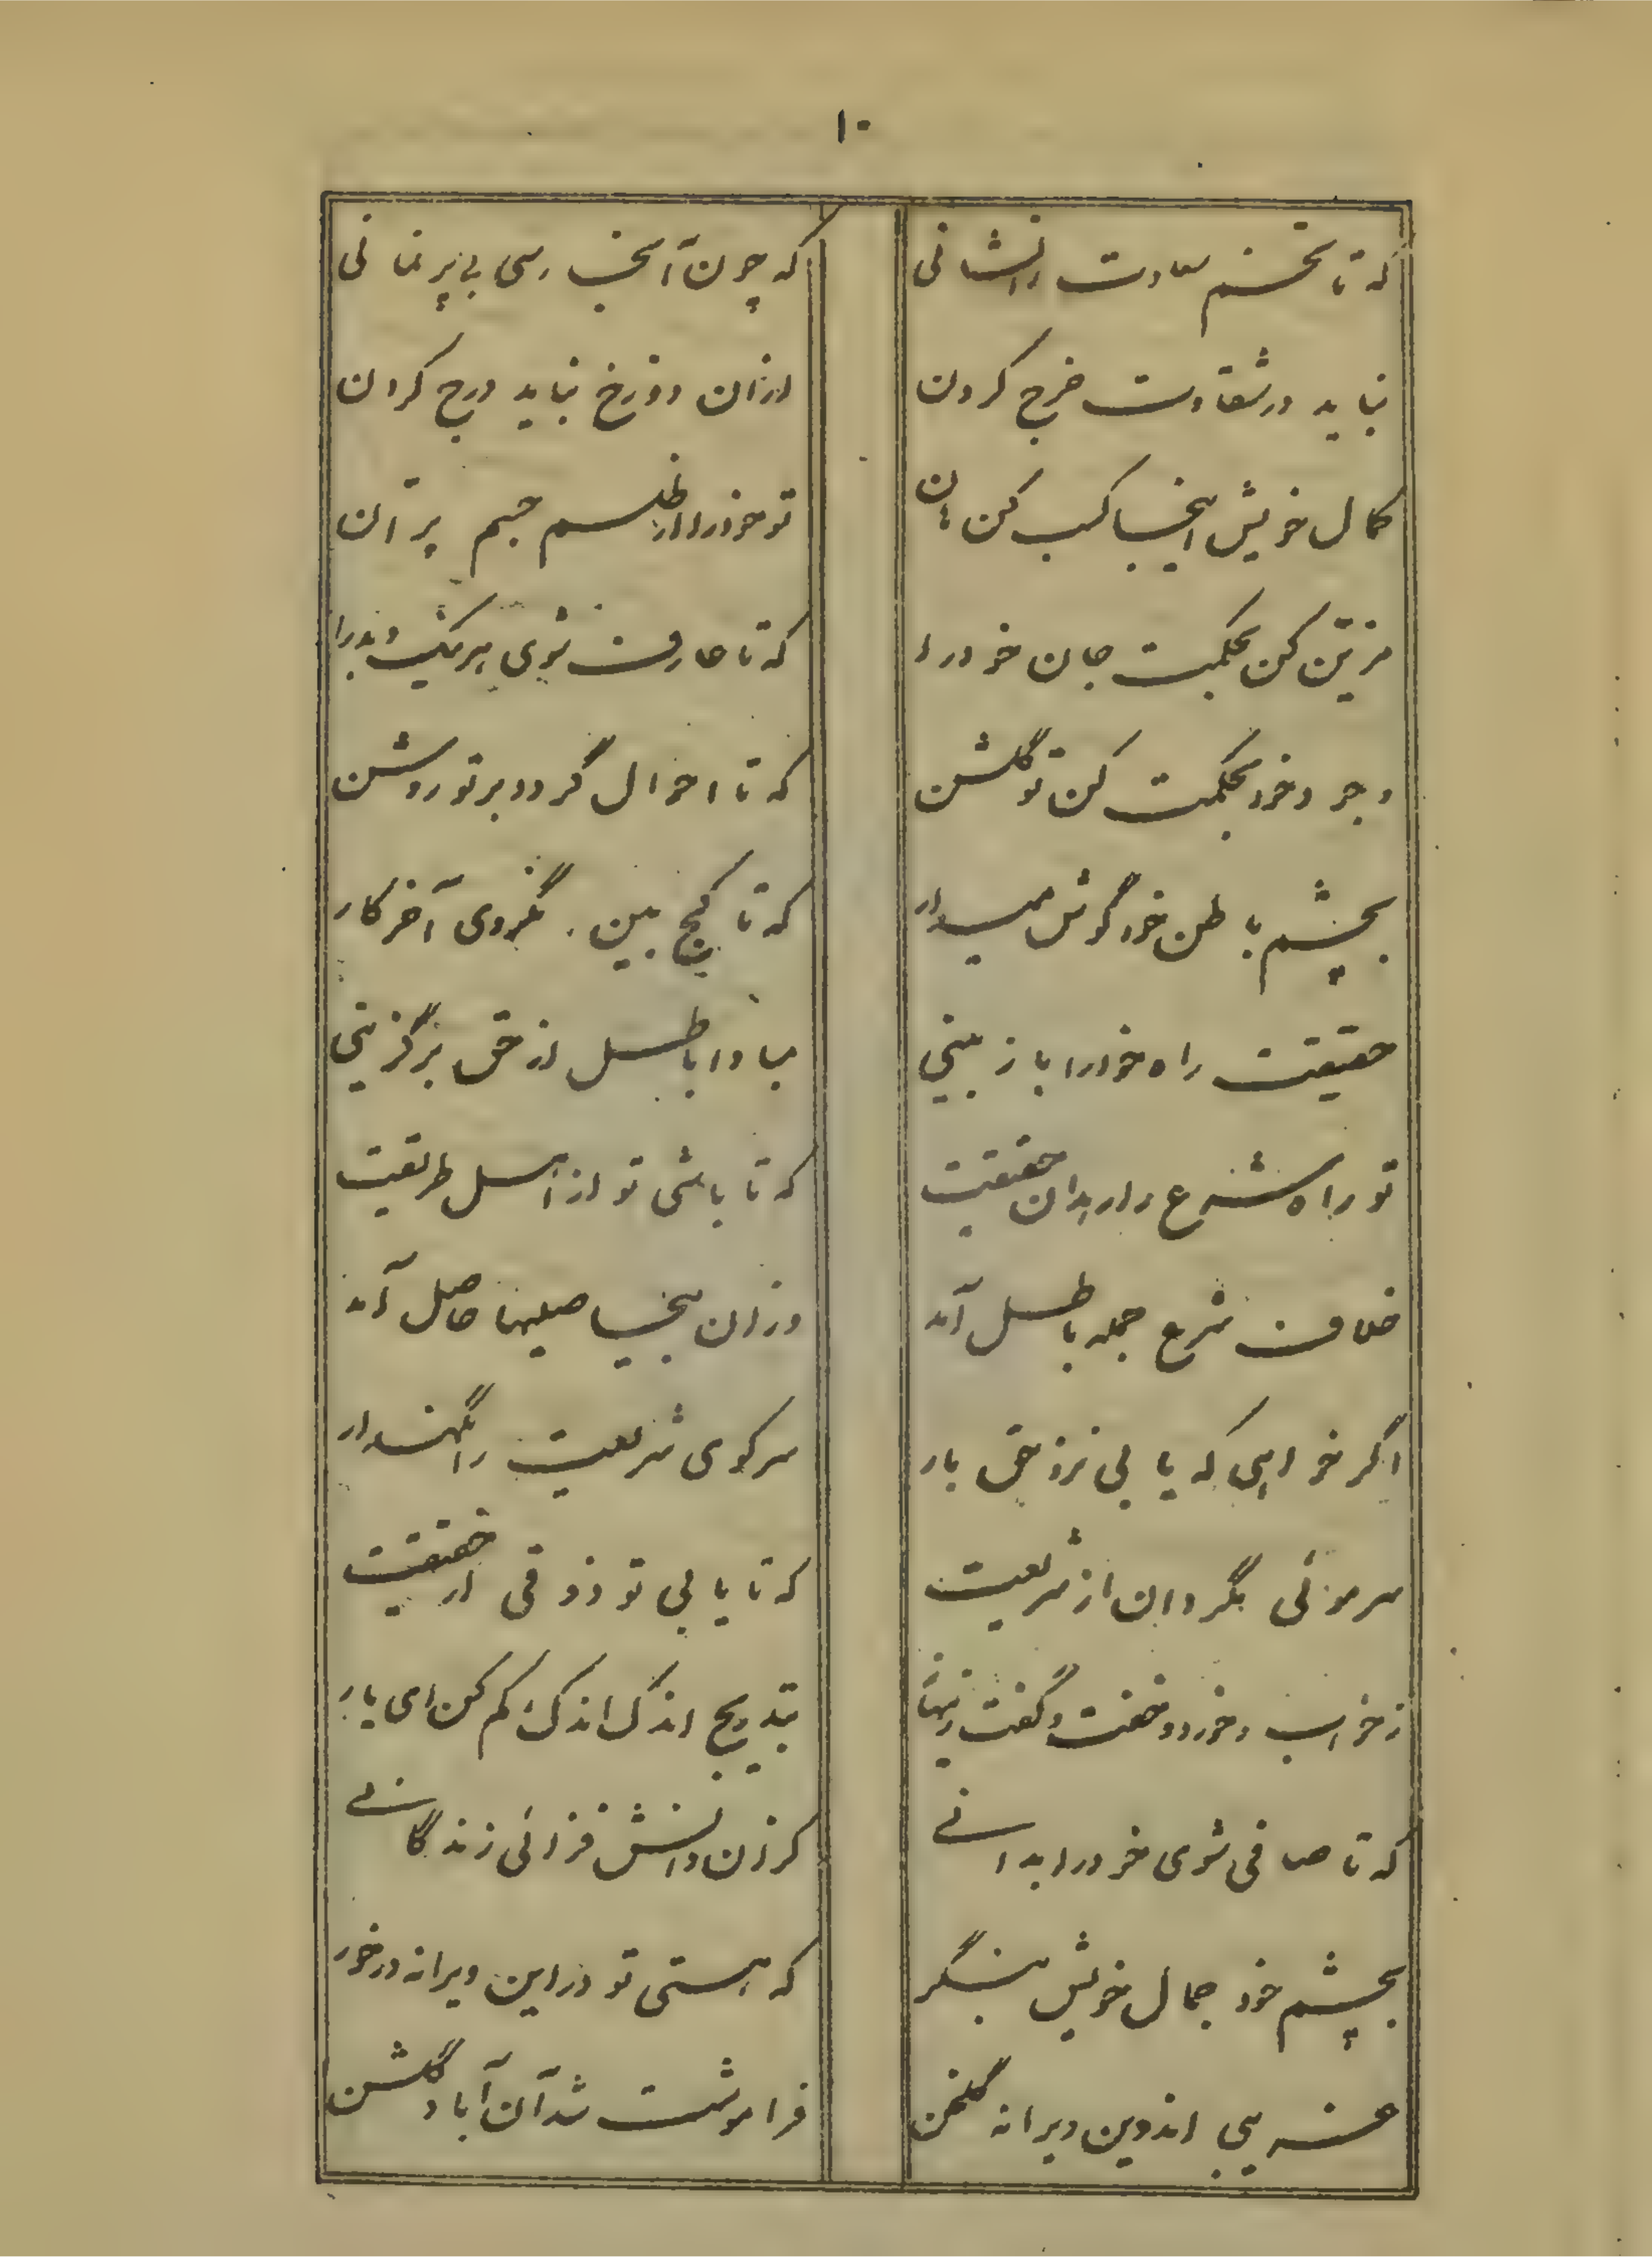 ۱۰
که تا تخم سعادت را نشانی که چون آنجا رسی بی‌بر نمانی
نباید در شقاوت خرج کردن ازان دوزخ نباید درج کردن
کمال خویش اینجا کسب کن هان تو خود را از طلسم جسم پرّان
مزیّن کن بحکمت جان خود را که تا عارف شوی هر نیک و بد را
وجود خود بحکمت کن تو گلشن که تا احوال گردد بر تو روشن
بچشم باطن خود گوش میدار که تا کج بین نگردی آخر کار
حقیقت راه خود را باز بینی مبادا باطل از حق برگزینی
تو راه شرع را راه بدان حقیقت که تا باشی تو از اهل طریقت
خلاف شرع جمله باطل آمد وزان بیحاصلیها حاصل آمد
اگر خواهی که یابی نزد حق بار سر کوی شریعت را نگهدار
سر موئی مگردان از شریعت که تا یابی تو ذوقی از حقیقت
ز خواب و خورد و خفت و گفت زنهار بتدریج اندک اندک کم کن ای یار
که تا صافی شوی خود را بدانی کزان دانش فزائی زندگانی
بچشم خود جمال خویش بنگر که هستی تو در این ویرانه در خور
غریبی اندرین ویرانه گلخن فراموشت شد آن آباد گلشن